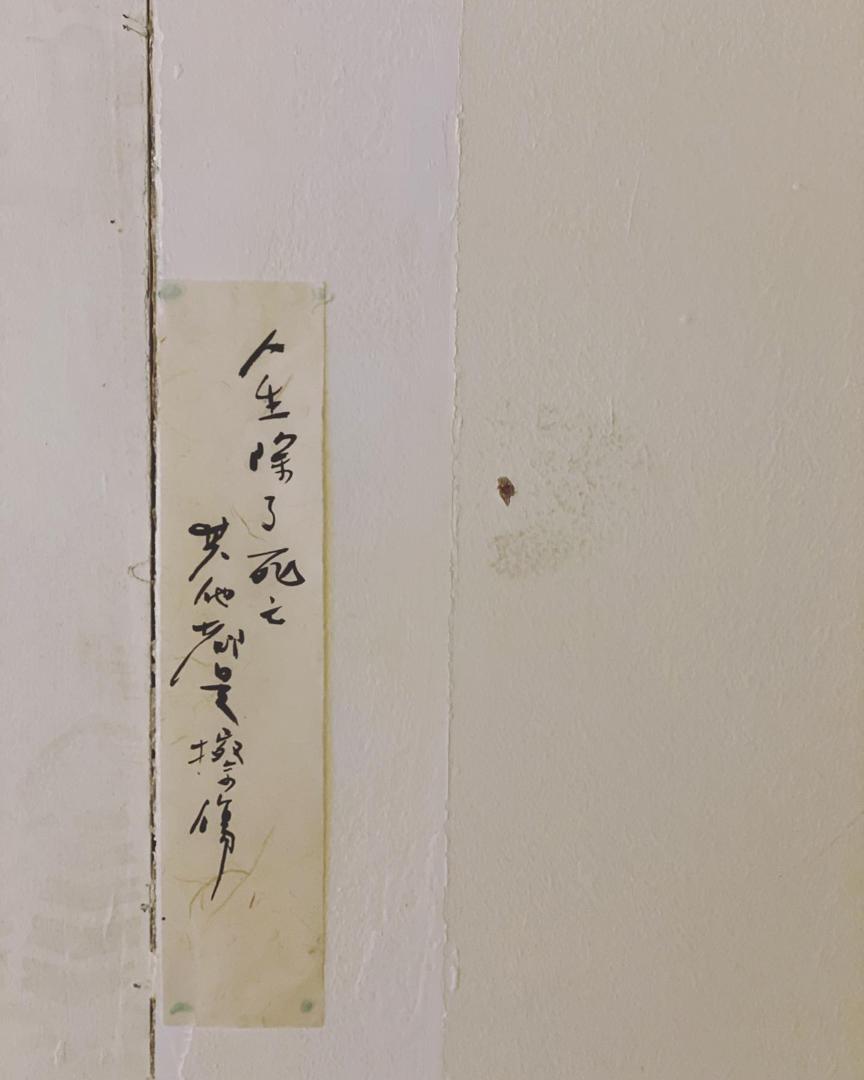 人生除了死亡
其他都是擦傷